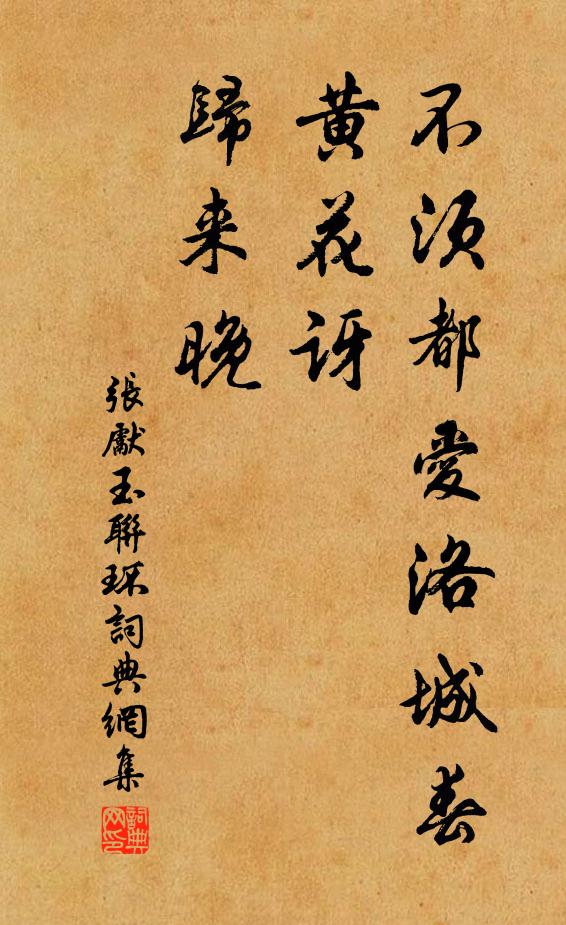 不须都愛洛城春
黄花訝
歸来晚
張獻玉聯珠詞典網集
詞典
网印